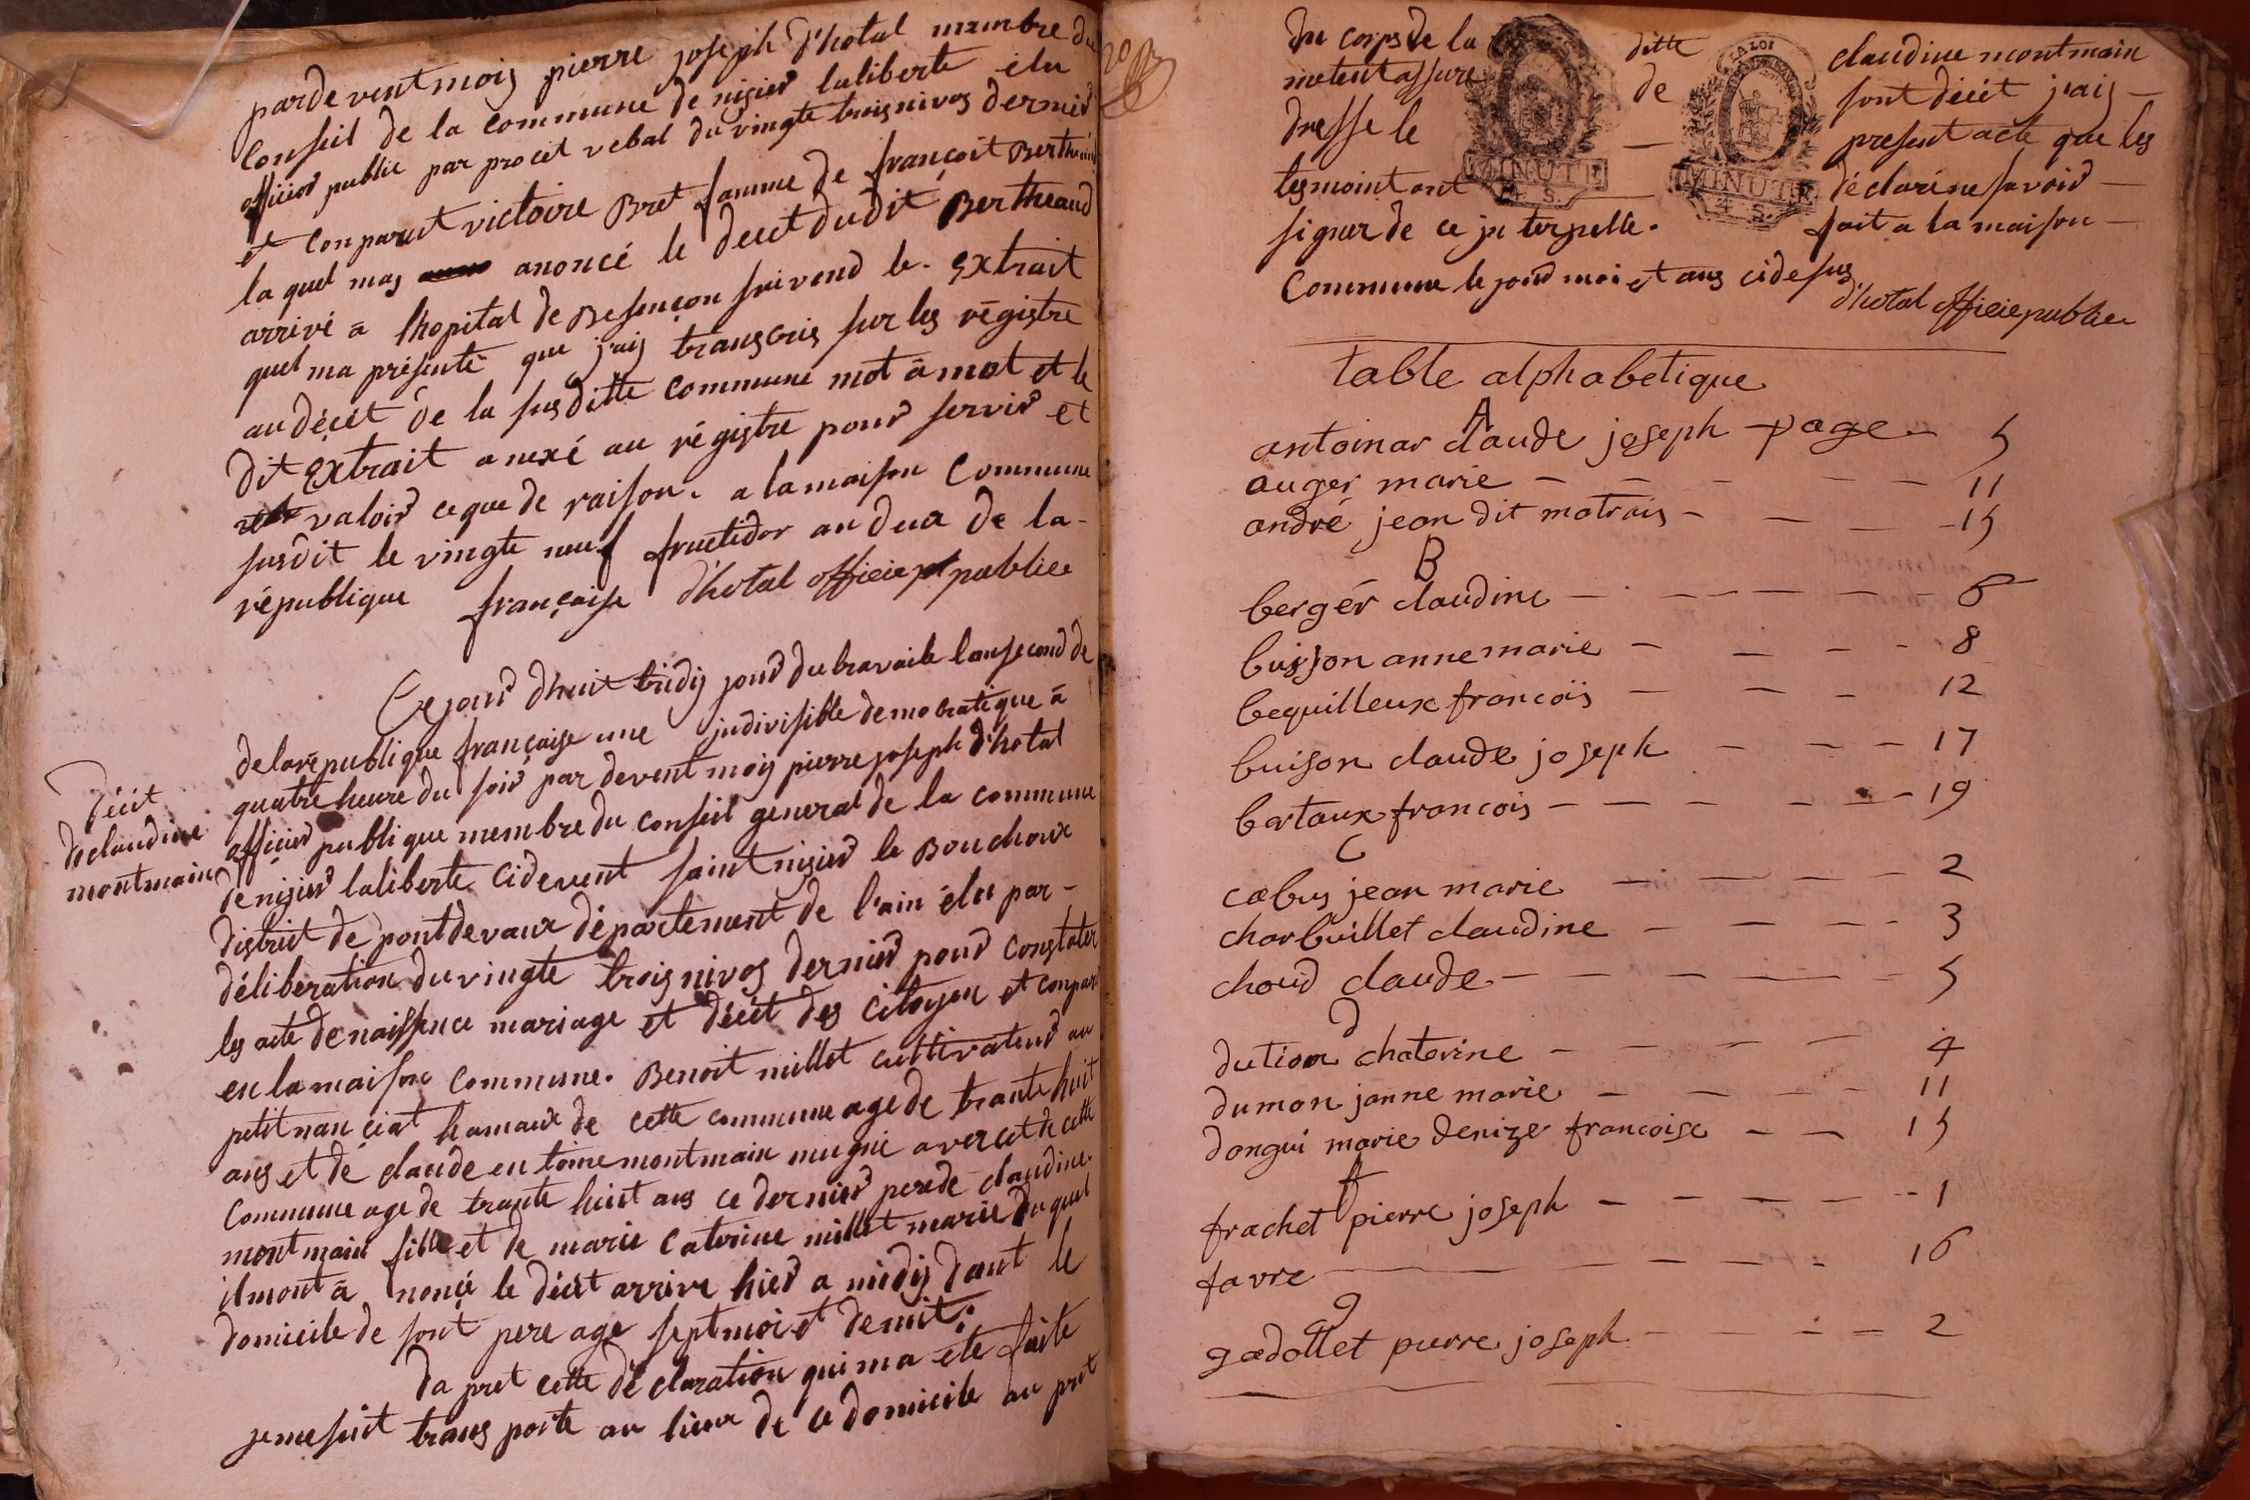 pardevent mois pierre joseph d'hotal membre du
conseil de la commune de nisier laliberte élu
officier public par procet vebal du vingte trois nivos dernier
et conparut victoire Bret famme de françoit Bertheaud
la quel mas anoncé le decet du dit Bertheaud
arrivé a lhopital de Besençon suivend le extrait
quel ma présenté que j'ais transcris sur les régistre
au décét de la susditte commune mot à mot et le
dit Extrait anexé au régistre pour servir et
valoir ce que de raison. a la maison commune
susdit le vingte neuf fructidor an deux de la
république française d'hotal officie publice
Ce jour d'huit tridij jour du travaile lan second de
de la république française une indivisible démocratique à
quatre heure du soir par devent moij pierre joseph d'hotal
officier publique membre du conseil general de la commune
de nisier laliberté cidevent saint nisier le Bouchoux
district de pontdevaux département de l'ain élu par
déliberation du vingte trois nivos dernier pour constater
les acte de naissence mariage et décét des citoyen et conparu
en la maison commune. Benoit millet cultivateur au
petit nanciat hamaux de cette commune age de trante huit
ans et de claude entoine montmain mugnié a vercet de cette
commune age de trante huit ans ce dernier perede claudine
montmain fille et de marie caterine millet marie du quel
il mont a noncé le décét arrive hier a midij dant le
domicile de sont pere age sept moi et demit.
Da pret cette déclaration qui ma été faite
je me suit trans porte au lieux de ce domicile au pret
Décét
de claudine
montmain
20
du corps de la ditte claudine montmain
metent assure de sont décét j'ais
dresse le present acte que les
tesmoint ont déclaré ne savoir
signer de ce in terpelle. fait a la maison
MINUTE
4 S.
MINUTE
4 S.
Commune le jour moi et ans cidesus
d'hotal officie publice
table alphabetique
A
antoinar claude joseph page 5
auger marie 11
andré jean dit matrais 15
B
bergér claudine 6
buisson anne marie 8
bequilleux francois 12
buison claude joseph 17
bertaux francois 19
C
cabus jean marie 2
charbuillet claudine 3
choud claude 5
d
dution chaterine 4
dumon janne marie 11
dongui marie denize francoise 15
f
frachet pierre joseph 1
favre 16
g
gadollet pierre joseph 2